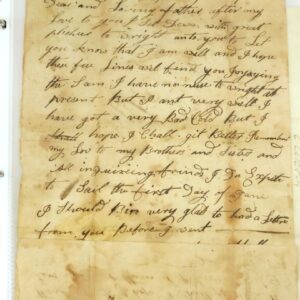 Dear and Loving father after my
Love to you I Set Down with great
pleasher to wright unto you to Let
you know that I am will and I hope
these few Lines will find you Injoying
the Sam I have no nuse to wright at
present But I ant very well I
have got a very Bad Cold But I
hope I Shall git Better Remember
my Lov to my Brothers and Sister and
all inquiering frinds I Do Expete
to Sail the first Day of June
I Should Bin very glad to had a Letter
from you Before I went